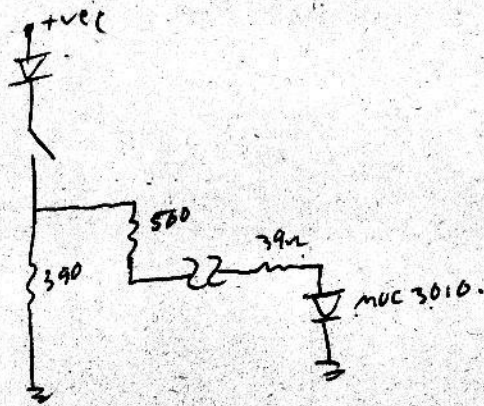 +vcc
560
390
39Ω
MOC 3010.